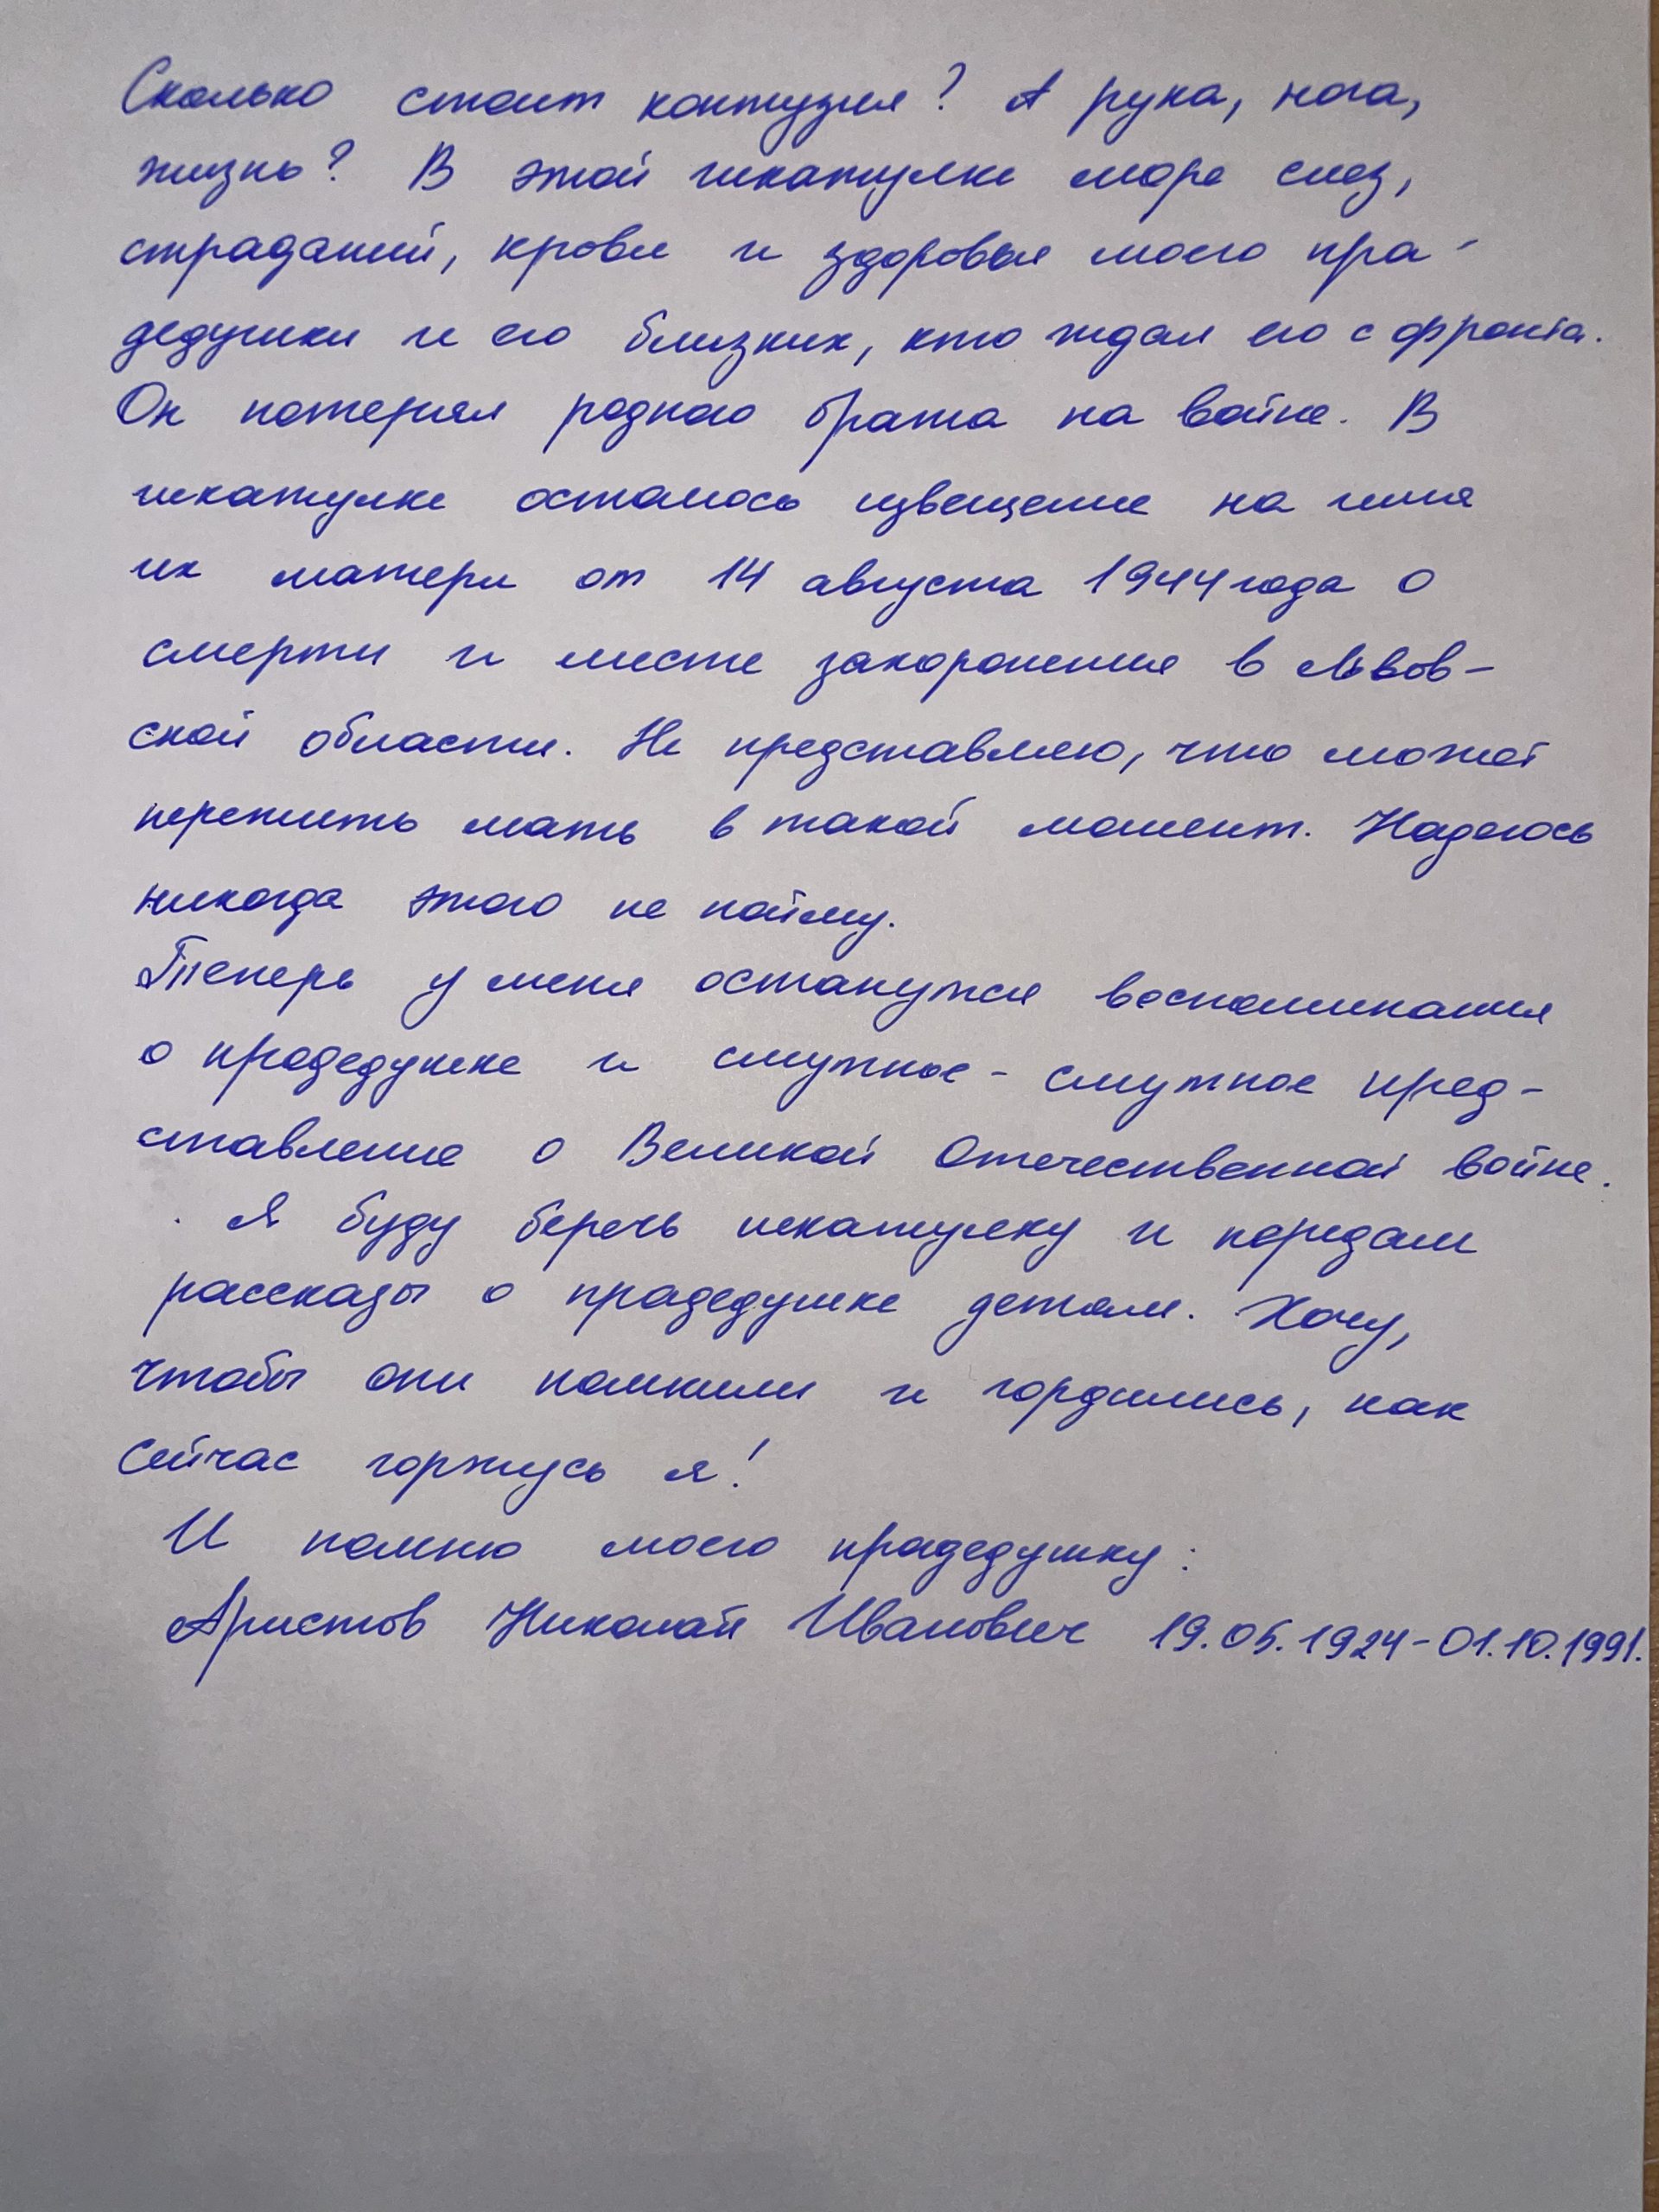 Сколько стоит контузия? А рука, нога,
жизнь? В этой шкатулке море слез,
страданий, крови и здоровья моего пра-
дедушки и его близких, кто ждал его с фронта.
Он потерял родного брата на войне. В
шкатулке осталось извещение на имя
их матери от 14 августа 1944 года о
смерти и месте захоронения в Львов-
ской области. Не представляю, что может
пережить мать в такой момент. Надеюсь
никогда этого не пойму.
Теперь у меня останутся воспоминания
о прадедушке и смутное-смутное пред-
ставление о Великой Отечественной войне.
Я буду беречь шкатулку и передам
рассказы о прадедушке детям. Хочу,
чтобы они помнили и гордились, как
сейчас горжусь я!
И помню моего прадедушку:
Аристов Николай Иванович 19.05.1924-01.10.1991.